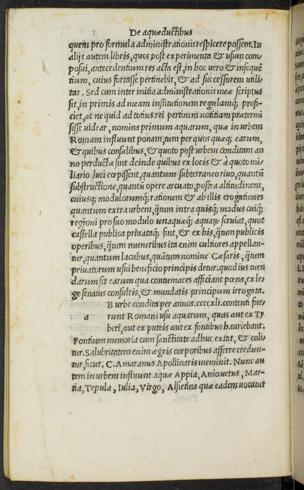 De aquæductibus
quem pro formula administrationis respicere possem. In
alijs autem libris, quos post experimenta & usum com-
positi, antecedentium res acta est, in hoc uero & insequē
tium, cuius fortasse pertinebit, & ad successorem utili
tas. Sed cum inter initia administrationis meæ scriptus
sit, in primis ad meam institutionem regulamq; profi-
ciet, ac ne quid ad totius rei pertinens notitiam prætermi
sisse uidear, nomina primum aquarum, quæ in urbem
Romam influunt ponam, tum per quos quæq; earum,
& quibus consulibus, & quoto post urbem conditam an
no perductæ sint deinde quibus ex locis & à quoto mi-
liario duci cœpissent, quantum subterraneo riuo, quantū
substructione, quantū opere arcuato, post ea altitudinem,
cuiusq; modulorumq; rationem & ab illis erogationes
quantum extra urbem, quantum intra quisq; modus cuiq;
regioni pro suo modulo unaquæq; aquarum seruiat, quot
castella publica priuataq; sint, & ex his, quantum publicis
operibus, quantum muneribus ita enim cultiores appellan-
tur, quantum lacubus, quantum nomine Cæsaris, quantum
priuatorum usui beneficio principis detur. quod ius tuen
darum sit earum quæ contumaces afficiant pœna, ex le-
ge senatus consultis, & mandatis principum irrogata.
AB urbe condita per annos. ccccxli. contenti fue
a
runt Romani usu aquarum, quas aut ex Ty
beri, aut ex puteis aut ex fontibus hauriebant.
Fontium memoria cum sanctitate adhuc extat, & coli-
tur. Salubritatem enim ægris corporibus afferre credun-
tur, sicut. C. Amaranus Apollinaris meminit. Nunc au
tem in urbem influunt aquæ Appia, Anio uetus, Mar-
tia, Tepula, Iulia, Virgo, Alsietina quæ eadem uocatur